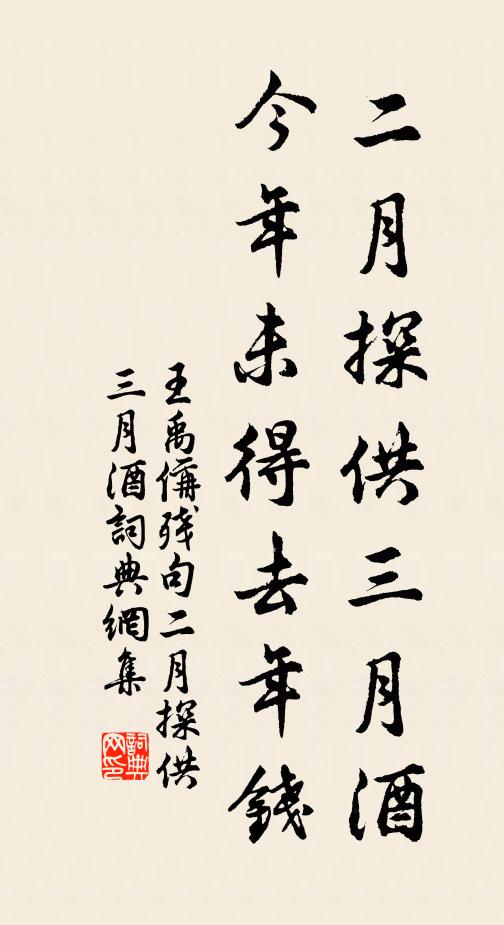 二月探供三月酒
今年未得去年錢
王禹偁残句二月探供
三月酒詞典網集
詞典网印